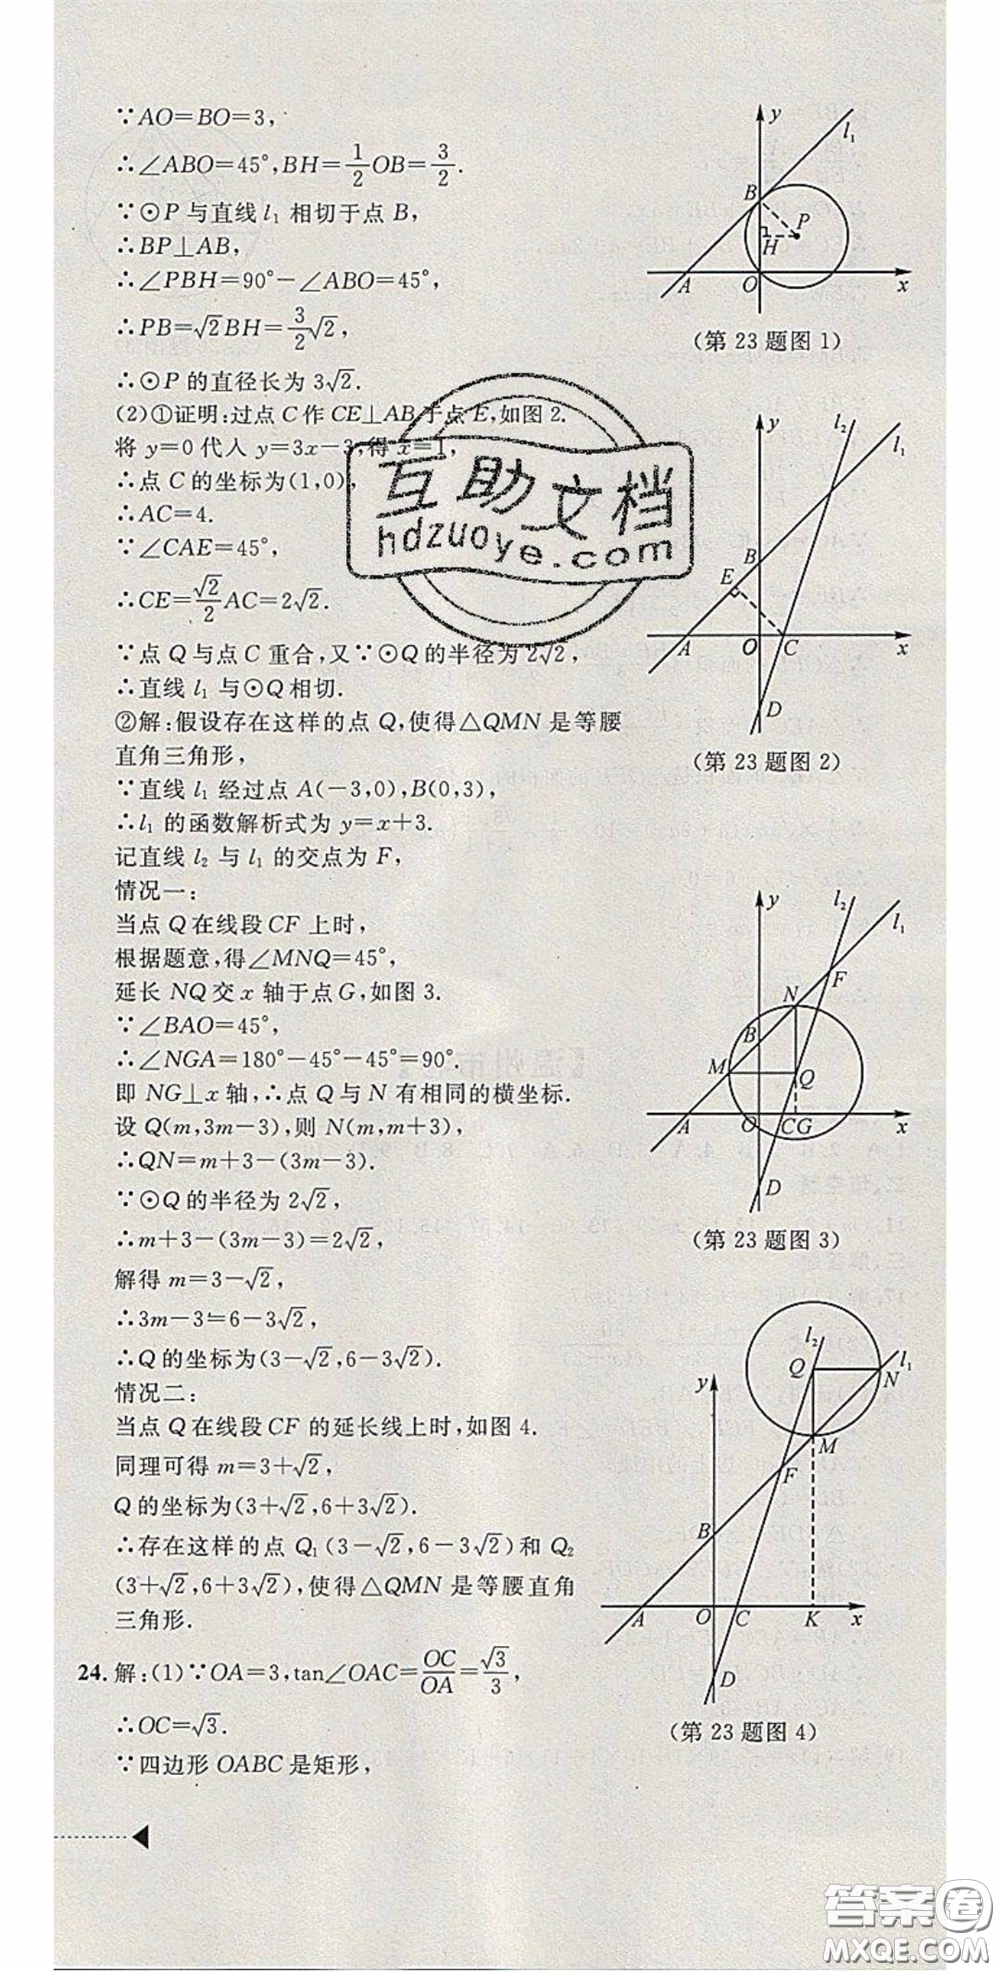 ∵AO=BO=3,
∴∠ABO=45°,BH=1/2OB=3/2.
∵⊙P与直线l₁相切于点B,
∴BP⊥AB,
∴∠PBH=90°-∠ABO=45°,
∴PB=√2BH=3/2√2,
∴⊙P的直径长为3√2.
(2)①证明:过点C作CE⊥AB于点E,如图2.
将y=0代入y=3x-3,得x=1,
∴点C的坐标为(1,0),
∴AC=4.
∵∠CAE=45°,
∴CE=√2/2AC=2√2.
∵点Q与点C重合,又∵⊙Q的半径为2√2,
∴直线l₁与⊙Q相切.
②解:假设存在这样的点Q,使得△QMN是等腰
直角三角形,
∵直线l₁经过点A(-3,0),B(0,3),
∴l₁的函数解析式为y=x+3.
记直线l₂与l₁的交点为F,
情况一:
当点Q在线段CF上时,
根据题意,得∠MNQ=45°,
延长NQ交x轴于点G,如图3.
∵∠BAO=45°,
∴∠NGA=180°-45°-45°=90°,
即NG⊥x轴,∴点Q与N有相同的横坐标.
设Q(m,3m-3),则N(m,m+3),
∴QN=m+3-(3m-3).
∵⊙Q的半径为2√2,
∴m+3-(3m-3)=2√2,
解得m=3-√2,
∴3m-3=6-3√2,
∴Q的坐标为(3-√2,6-3√2).
情况二:
当点Q在线段CF的延长线上时,如图4.
同理可得m=3+√2,
Q的坐标为(3+√2,6+3√2).
∴存在这样的点Q₁(3-√2,6-3√2)和Q₂
(3+√2,6+3√2),使得△QMN是等腰直角
三角形.
24.解:(1)∵OA=3,tan∠OAC=OC/OA=√3/3,
∴OC=√3.
∵四边形OABC是矩形,
y
l₁
B
P
H
A
O
x
(第23题图1)
y
l₂
l₁
B
E
A
O
C
x
D
(第23题图2)
y
l₂
l₁
F
N
B
M
Q
A
O
CG
x
D
(第23题图3)
l₂
l₁
Q
N
y
M
F
B
A
O
C
K
x
D
(第23题图4)
互助文档
hdzuoye.com
答案圈
MXQE.COM